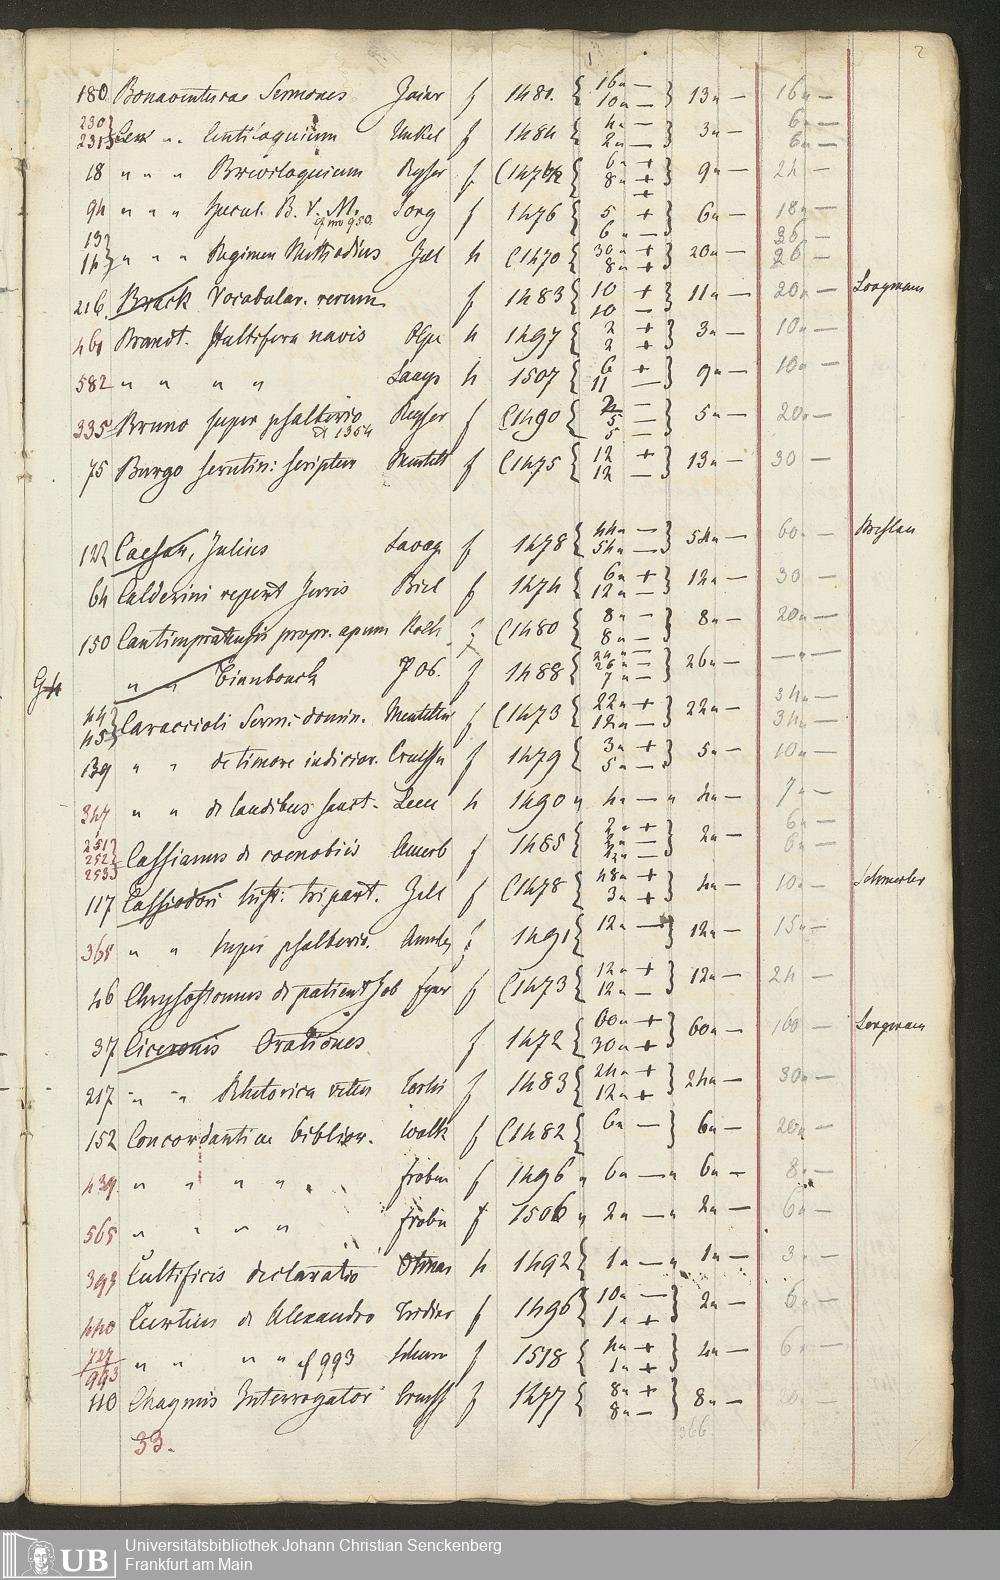 2
180 Bonaventurae Sermones Zainer f 1481. { 16„ — 10„ — } 13„ — 16„ —
230 231 } „ „ Centiloquium f 1484 { 4„ — 2„ — } 3„ — 6„ — 6„ —
18 „ „ „ Breviloquium Ryser f. (1472 { 6„ + 8„ + + } 9„ — 24 —
94 „ „ „ Specul. B. V. M. Sorg f 1476 { 5 + 6 — } 6„ — 18„ —
13 14 } „ „ „ Regimen Zel h (1470 { 30„ + 8„ + } 20„ — 36 — 26 —
216. Brack Vocabular. rerum f 1483 { 10 + 10 — } 11„ — 20„ — Longmann
461 Brandt. Stultifera navis Olpe h 1497 { 2 + 2 + } 3„ — 10„ —
582 „ „ „ „ h 1507 { 6 + 11 — } 9„ — 10„ —
335 Bruno super psalterio Reyser f (1490 { — 5 — 5 — } 5„ — 20„ —
75 Burgo scrutin: scriptur Mentell f (1475 { 12 + 12 — } 13„ — 30 —
122 Caesar, Julius Lavag f 1478 { 44„ — 54„ — } 54„ — 60„ — Breslau
64 Calderini repert Juris Biel f 1474 { 6„ + 12„ — } 12„ — 30 —
150 Cantimpratensis propr. apum Kolh f (1480 { 8„ — 8„ — } 8„ — 20„ —
„ „ f 1488 { 24„ — 26„ — 7„ — } 26„ — —„—
44 45 } Caraccioli Serm: domin. Mentelin f (1473 { 22„ + 12„ — } 22„ — 34„ — 34„ —
139 „ „ de timore iudicior. f 1479 { 3„ + 5„ — } 5„ — 10„ —
347 „ „ de laudibus sanct. Leeu h 1490 „ 4„ — „ 4„ — 7„ —
251 252 253 } Cassianus de coenobiis Amerb f 1485 { 2„ + — — } 2„ — 6„ — 6„ —
117 Cassiodori hist: tripart. Zell f (1478 { 48„ + 3„ + } 4„ — 10„ —
368 „ „ super psalterio. Amerb f 1491 { 12„ — } 12„ — 15„ —
46 Chrysostomus de patient Job f (1473 { 12„ + 12„ — } 12„ — 24 —
37 Ciceronis Orationes f 1472 { 60„ + 30„ + } 60„ — 160 — Longmann
217 „ „ Rhetorica vetus f 1483 { 24„ + 12„ + } 24„ — 30„ —
152 Concordantiae biblior. f (1482 { 6„ — } 6„ — 20„ —
439. „ „ „ „ Froben f 1496 „ 6„ — „ 6„ — 8„ —
565 „ „ „ „ Frobn f 1506 „ 2„ — „ 2„ — 6„ —
393 Cultificis declaratio Otmar h 1492 { 1„ — „ 1„ — 3„ —
440 Curtius de Alexandro f 1496 { 10„ — 1„ + } 2„ — 6„ —
727 993 „ „ „ „ cf 993 Schurer f 1518 { 4„ + 1„ + } 4„ — 6„ —
110 Chaymis Interrogator f 1477 { 8„ + 8„ — } 8„ — 20„ —
33.
366
UB Universitätsbibliothek Johann Christian Senckenberg
Frankfurt am Main